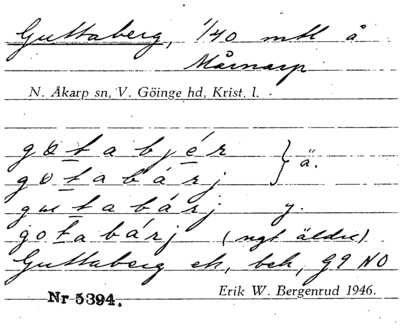 Guttaberg, 1/40 mtl å
Mårnarp
N. Åkarp sn, V. Göinge hd, Krist. l.
gɷtabjér } ä.
gɷtabárj
gutabárj y.
gotabárj (ngt äldre)
Guttaberg ek, bek, G9 NO
Nr 5394. Erik W. Bergenrud 1946.